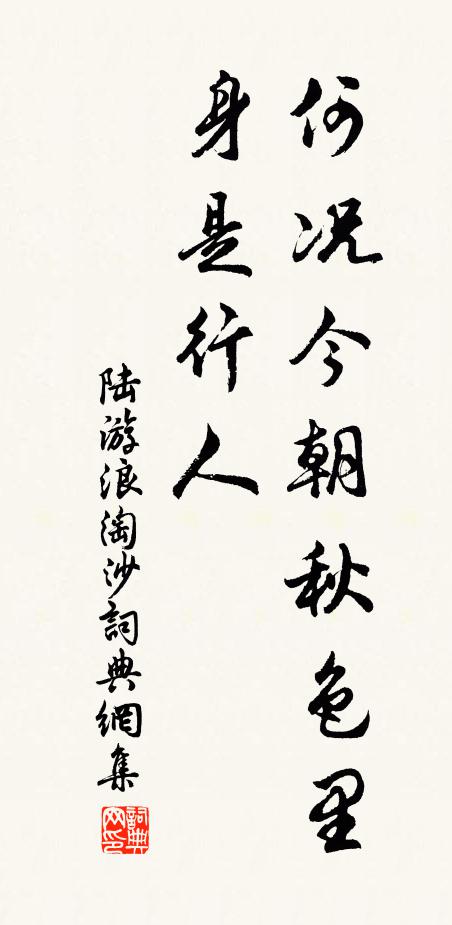 何况今朝秋色里
身是行人
陆游浪淘沙詞典網集
詞典网印